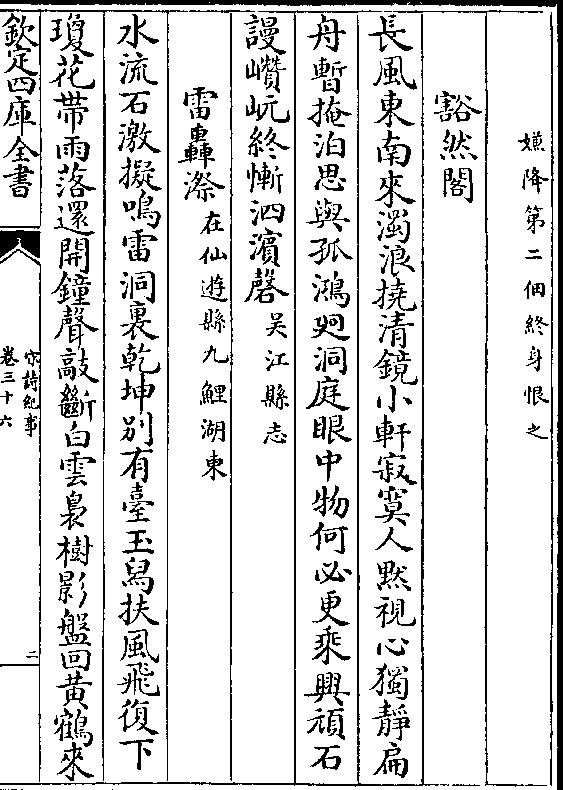 嫌降第二佃終身恨之
豁然閣
長風東南來濁浪撓清鏡小軒寂寞人默視心獨靜扁
舟暫掩泊思與孤鴻逈洞庭眼中物何必更乘興頑石
謾巑岏終慚泗濱磬吳江縣志
雷轟漈在仙遊縣九鯉湖東
水流石激擬鳴雷洞裏乾坤别有臺玉舄扶風飛復下
瓊花帶雨落還開鐘聲敲斷白雲裊樹影盤回黄鶴來
欽定四庫全書
宋詩紀事
卷三十六
二